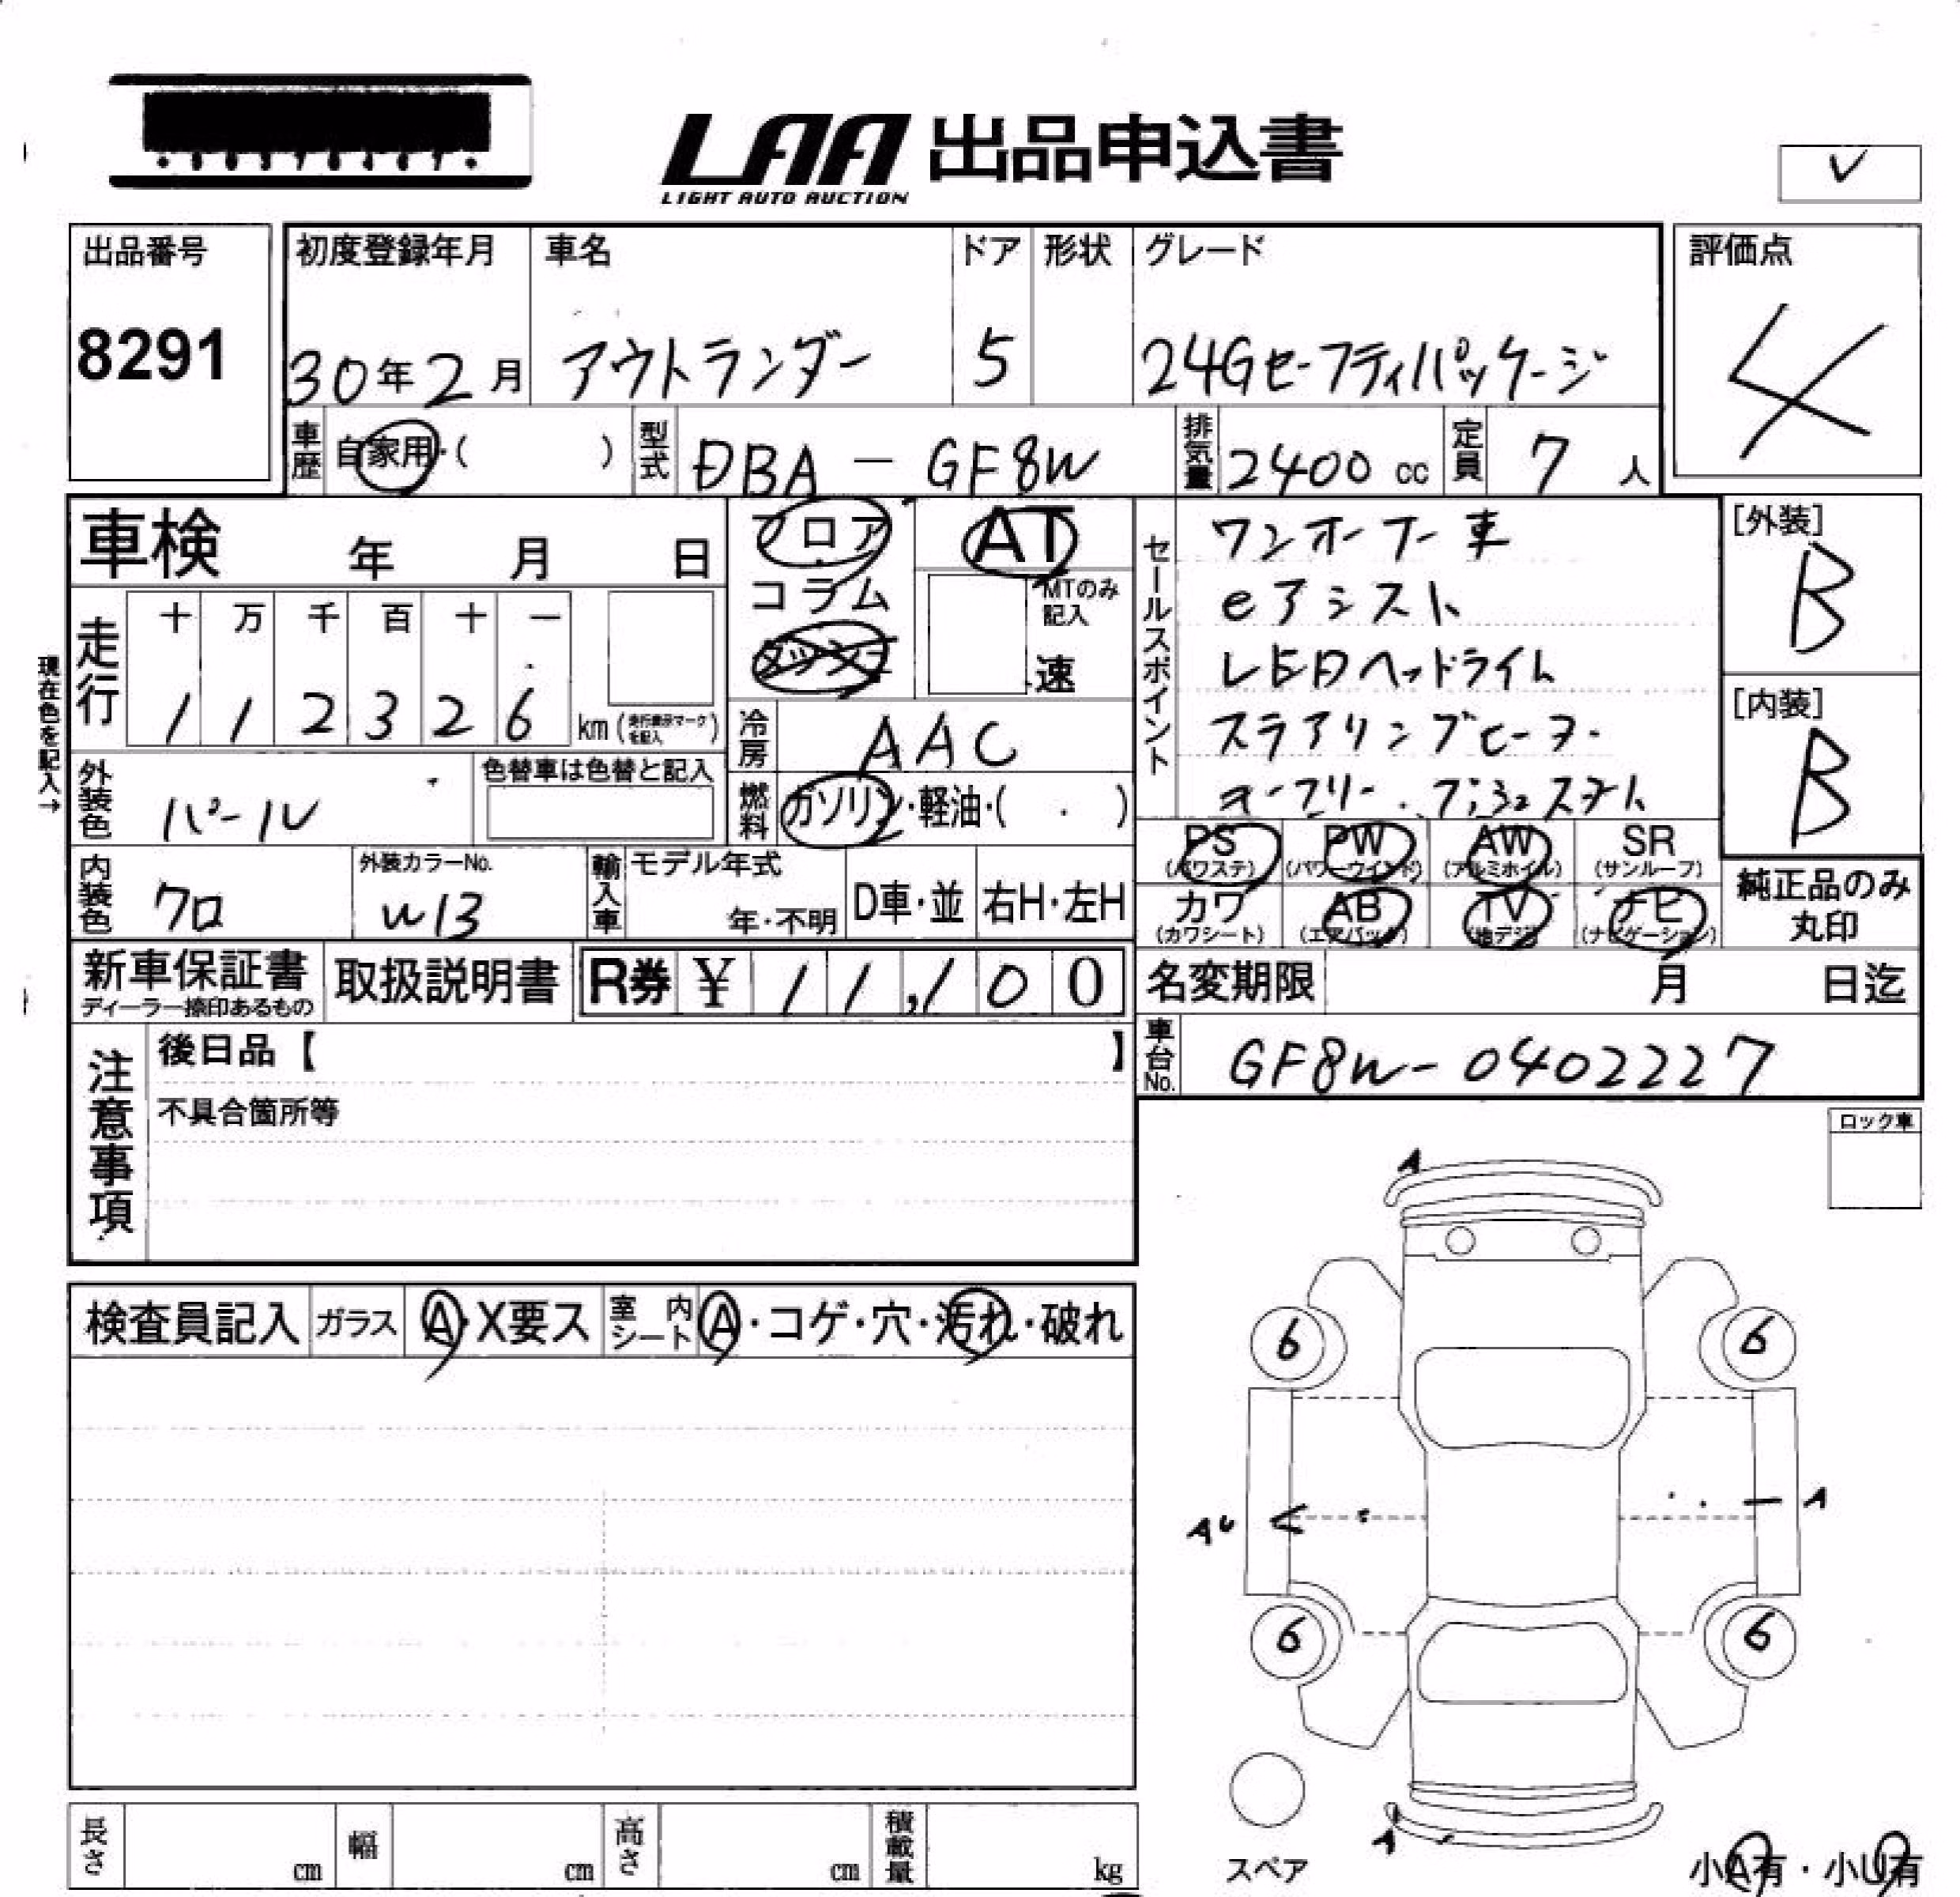 LAA 出品申込書
LIGHT AUTO AUCTION
出品番号 初度登録年月 車名 ドア 形状 グレード 評価点
8291 30年2月 アウトランダー 5 24Gセーフティパッケージ 4
車歴 自家用・( ) 型式 DBA-GF8W 排気量 2400 cc 定員 7 人
車検 年 月 日
フロア AT
コラム MTのみ記入
速
セールスポイント
ワンオーナー車
eアシスト
LEDヘッドライト
ステアリングヒーター
キーフリー・プッシュスタート
[外装]
B
[内装]
B
現在色を記入→
走行 十 万 千 百 十 一
1 1 2 3 2 6 km (走行表示マークを記入)
冷房 AAC
外装色 パール 色替車は色替と記入
燃料 ガソリン・軽油・( ・ )
PS (パワステ) PW (パワーウインド) AW (アルミホイル) SR (サンルーフ)
カワ (カワシート) AB (エアバック) TV (地デジ) ナビ (ナビゲーション)
純正品のみ丸印
内装色 クロ 外装カラーNo. W13 輸入車 モデル年式 年・不明 D車・並 右H・左H
新車保証書 ディーラー捺印あるもの 取扱説明書 R券 ¥ 11,100
名変期限 月 日迄
車台No. GF8W-0402227
注意事項 後日品【 】
不具合箇所等
ロック車
A
検査員記入 ガラス A・X要ス 室内シート A・コゲ・穴・汚れ・破れ
6 6
AU A
6 6
A
スペア
小A有・小U有
長さ cm 幅 cm 高さ cm 積載量 kg